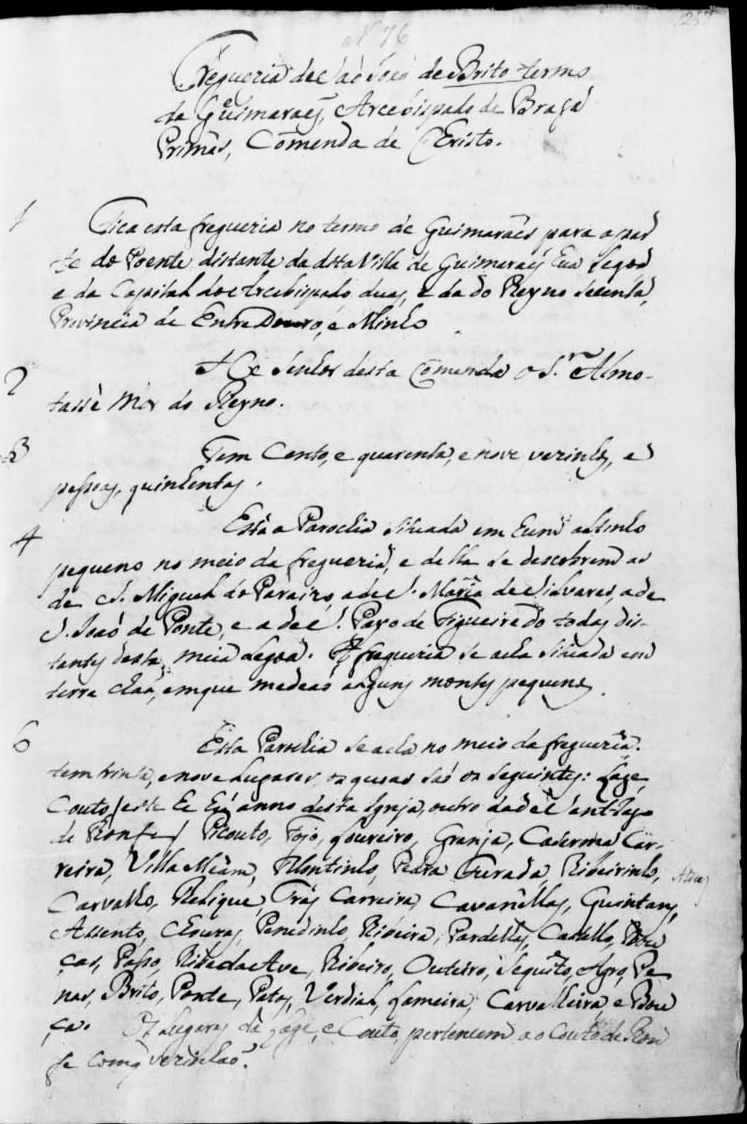 N 76
287
Freguezia de Saó Joaó de Brito termo
de Guimaraes, Arcebispado de Braga
Primâs, Comenda de Christo.
1
Fica esta freguezia no termo de Guimarães para a par
te do Poente distante da ditta Villa de Guimaraes hua legoa
e da Capital do Arcebispado duas, e da do Reyno secenta,
Provincia de Entre Douro, e Minho
2
He Senhor desta Comenda o S.or Almo-
tassè Mòr do Reyno.
3
Tem Cento, e quarenta, e nove vezinhos, e
pessoas, quinhentas.
4
Está a Parochia situada em hum altinho
pequeno no meio da freguezia, e della se descobrem as
de S. Miguel do Paraizo, a de S. Maria de Silvares, a de
S. Joaó de Ponte, e a de S. Payo de Figueiredo todas dis-
tantes desta meia legoa. A freguezia se acha situada em
terra chaã, em que medeaó alguns montes pequenos.
6
Esta Parochia se acha no meio da freguezia.
tem trinta, e nove lugares, os quaes saó os seguintes: Lage,
Couto, este he hú anno desta Igreja, outro da de Santiago
de Ronfe Picouto, Fojo, Loureiro, Granja, Caderoma Car-
reira, Villa Meam, Montinho, Pedra Furada, Ribeirinho,
Carvalho, Relique, Tràs Carreira, Cavanellas, Quintans,
Assento, Chouzas, Penedinho, Ribeira, Pardellas, Castello, Bou
ças, Passo, Riba de Ave, Ribeiro, Outeiro, Sequito, Agro, Pe
nas, Brito, Ponte, Patos, Verdial, Lameira, Carvalheira, e Bou
ça. Os lugares da Lage, e Couto, pertencem ao Couto de Ron
fe com 9 vezinhos.